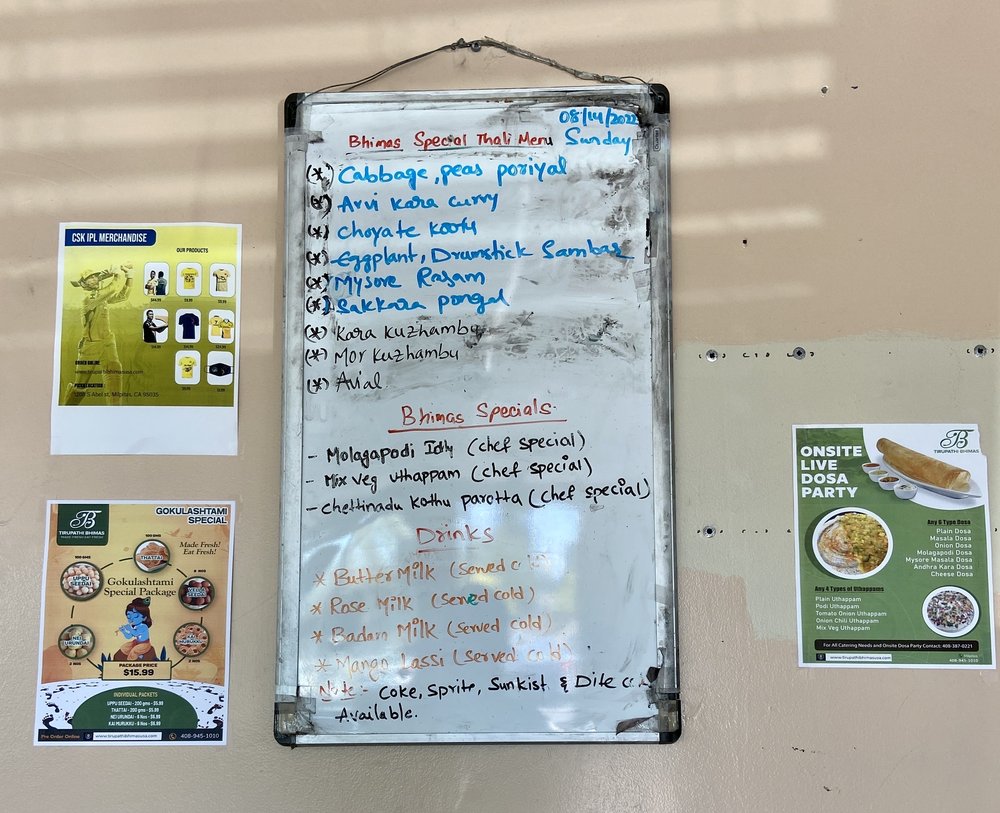 08/14/2022
Bhimas Special Thali Menu Sunday
(*) Cabbage, peas poriyal
(*) Arvi Kara curry
(*) Choyate Kootu
(*) Eggplant, Drumstick Sambar
(*) Mysore Rasam
(*) Sakkara pongal
(*) Kara Kuzhambu
(*) Mor Kuzhambu
(*) Avial
Bhimas Specials
- Molagapodi Idly (chef special)
- Mix veg uthappam (chef special)
- chettinadu kothu parotta (chef special)
Drinks
* Butter Milk (served
* Rose Milk (served cold)
* Badam Milk (served cold)
* Mango Lassi (served cold)
Note:- Coke, Sprite, Sunkist & Dite
Available.
CSK IPL MERCHANDISE
OUR PRODUCTS
ORDER ONLINE
www.tirupathibhimasusa.com
PICKUP LOCATION
1208 S Abel st, Milpitas, CA 95035
TIRUPATHI BHIMAS
MADE FRESH! EAT FRESH!
GOKULASHTAMI
SPECIAL
Made Fresh!
Eat Fresh!
100 GMS
THATTAI
100 GMS
UPPU
SEEDAI
6 NOS
Gokulashtami
Special Package
NEI
URUNDAI
2 NOS
KAI
MURUKKU
2 NOS
PACKAGE PRICE
$15.99
INDIVIDUAL PACKETS
UPPU SEEDAI - 200 gms - $5.99
THATTAI - 200 gms - $5.99
NEI URUNDAI - 6 Nos - $6.99
KAI MURUKKU - 6 Nos - $6.99
Pre Order Online
www.tirupathibhimasusa.com
408-945-1010
TIRUPATHI BHIMAS
ONSITE
LIVE
DOSA
PARTY
Any 6 Type Dosa
Plain Dosa
Masala Dosa
Onion Dosa
Molagapodi Dosa
Mysore Masala Dosa
Andhra Kara Dosa
Cheese Dosa
Any 4 Types of Uthappams
Plain Uthappam
Podi Uthappam
Tomato Onion Uthappam
Onion Chili Uthappam
Mix Veg Uthappam
For All Catering Needs and Onsite Dosa Party Contact: 408-387-0221
www.tirupathibhimasusa.com
Milpitas
408-945-1010